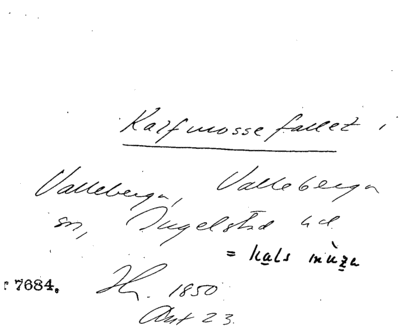 Kalfmossefallet i
Valleberga, Valleberga
sn, Ingelstad hd
= kals mùza
7684. 1850
Ant 23.